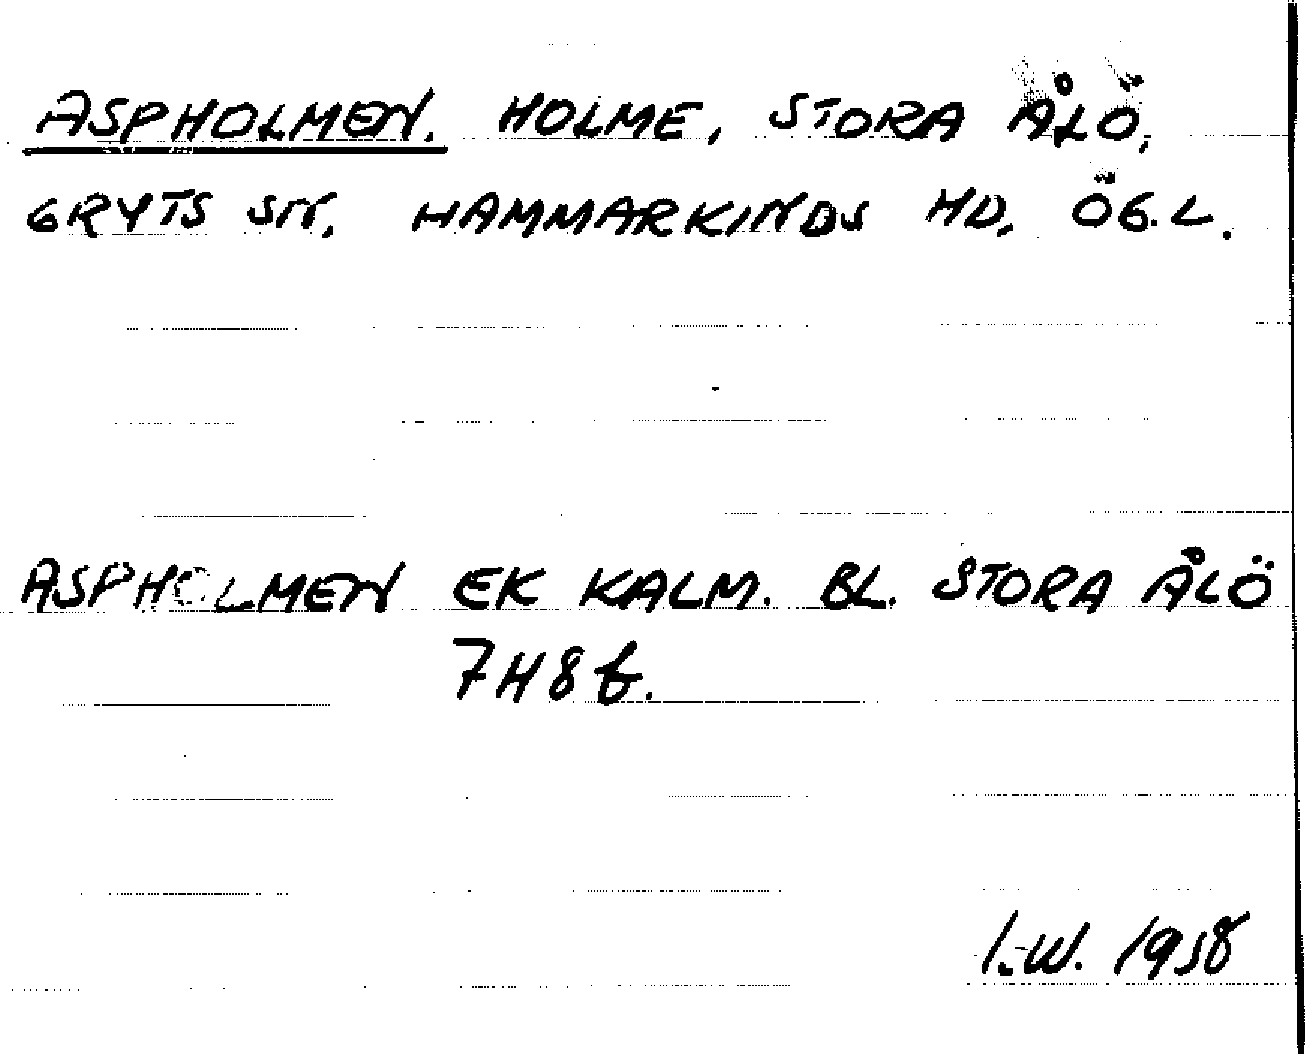 ASPHOLMEN. HOLME, STORA ÅLÖ,
GRYTS SN, HAMMARKINDS HD, ÖG.L.
ASPHOLMEN EK KALM. BL. STORA ÅLÖ
7H8f.
I.W. 1958